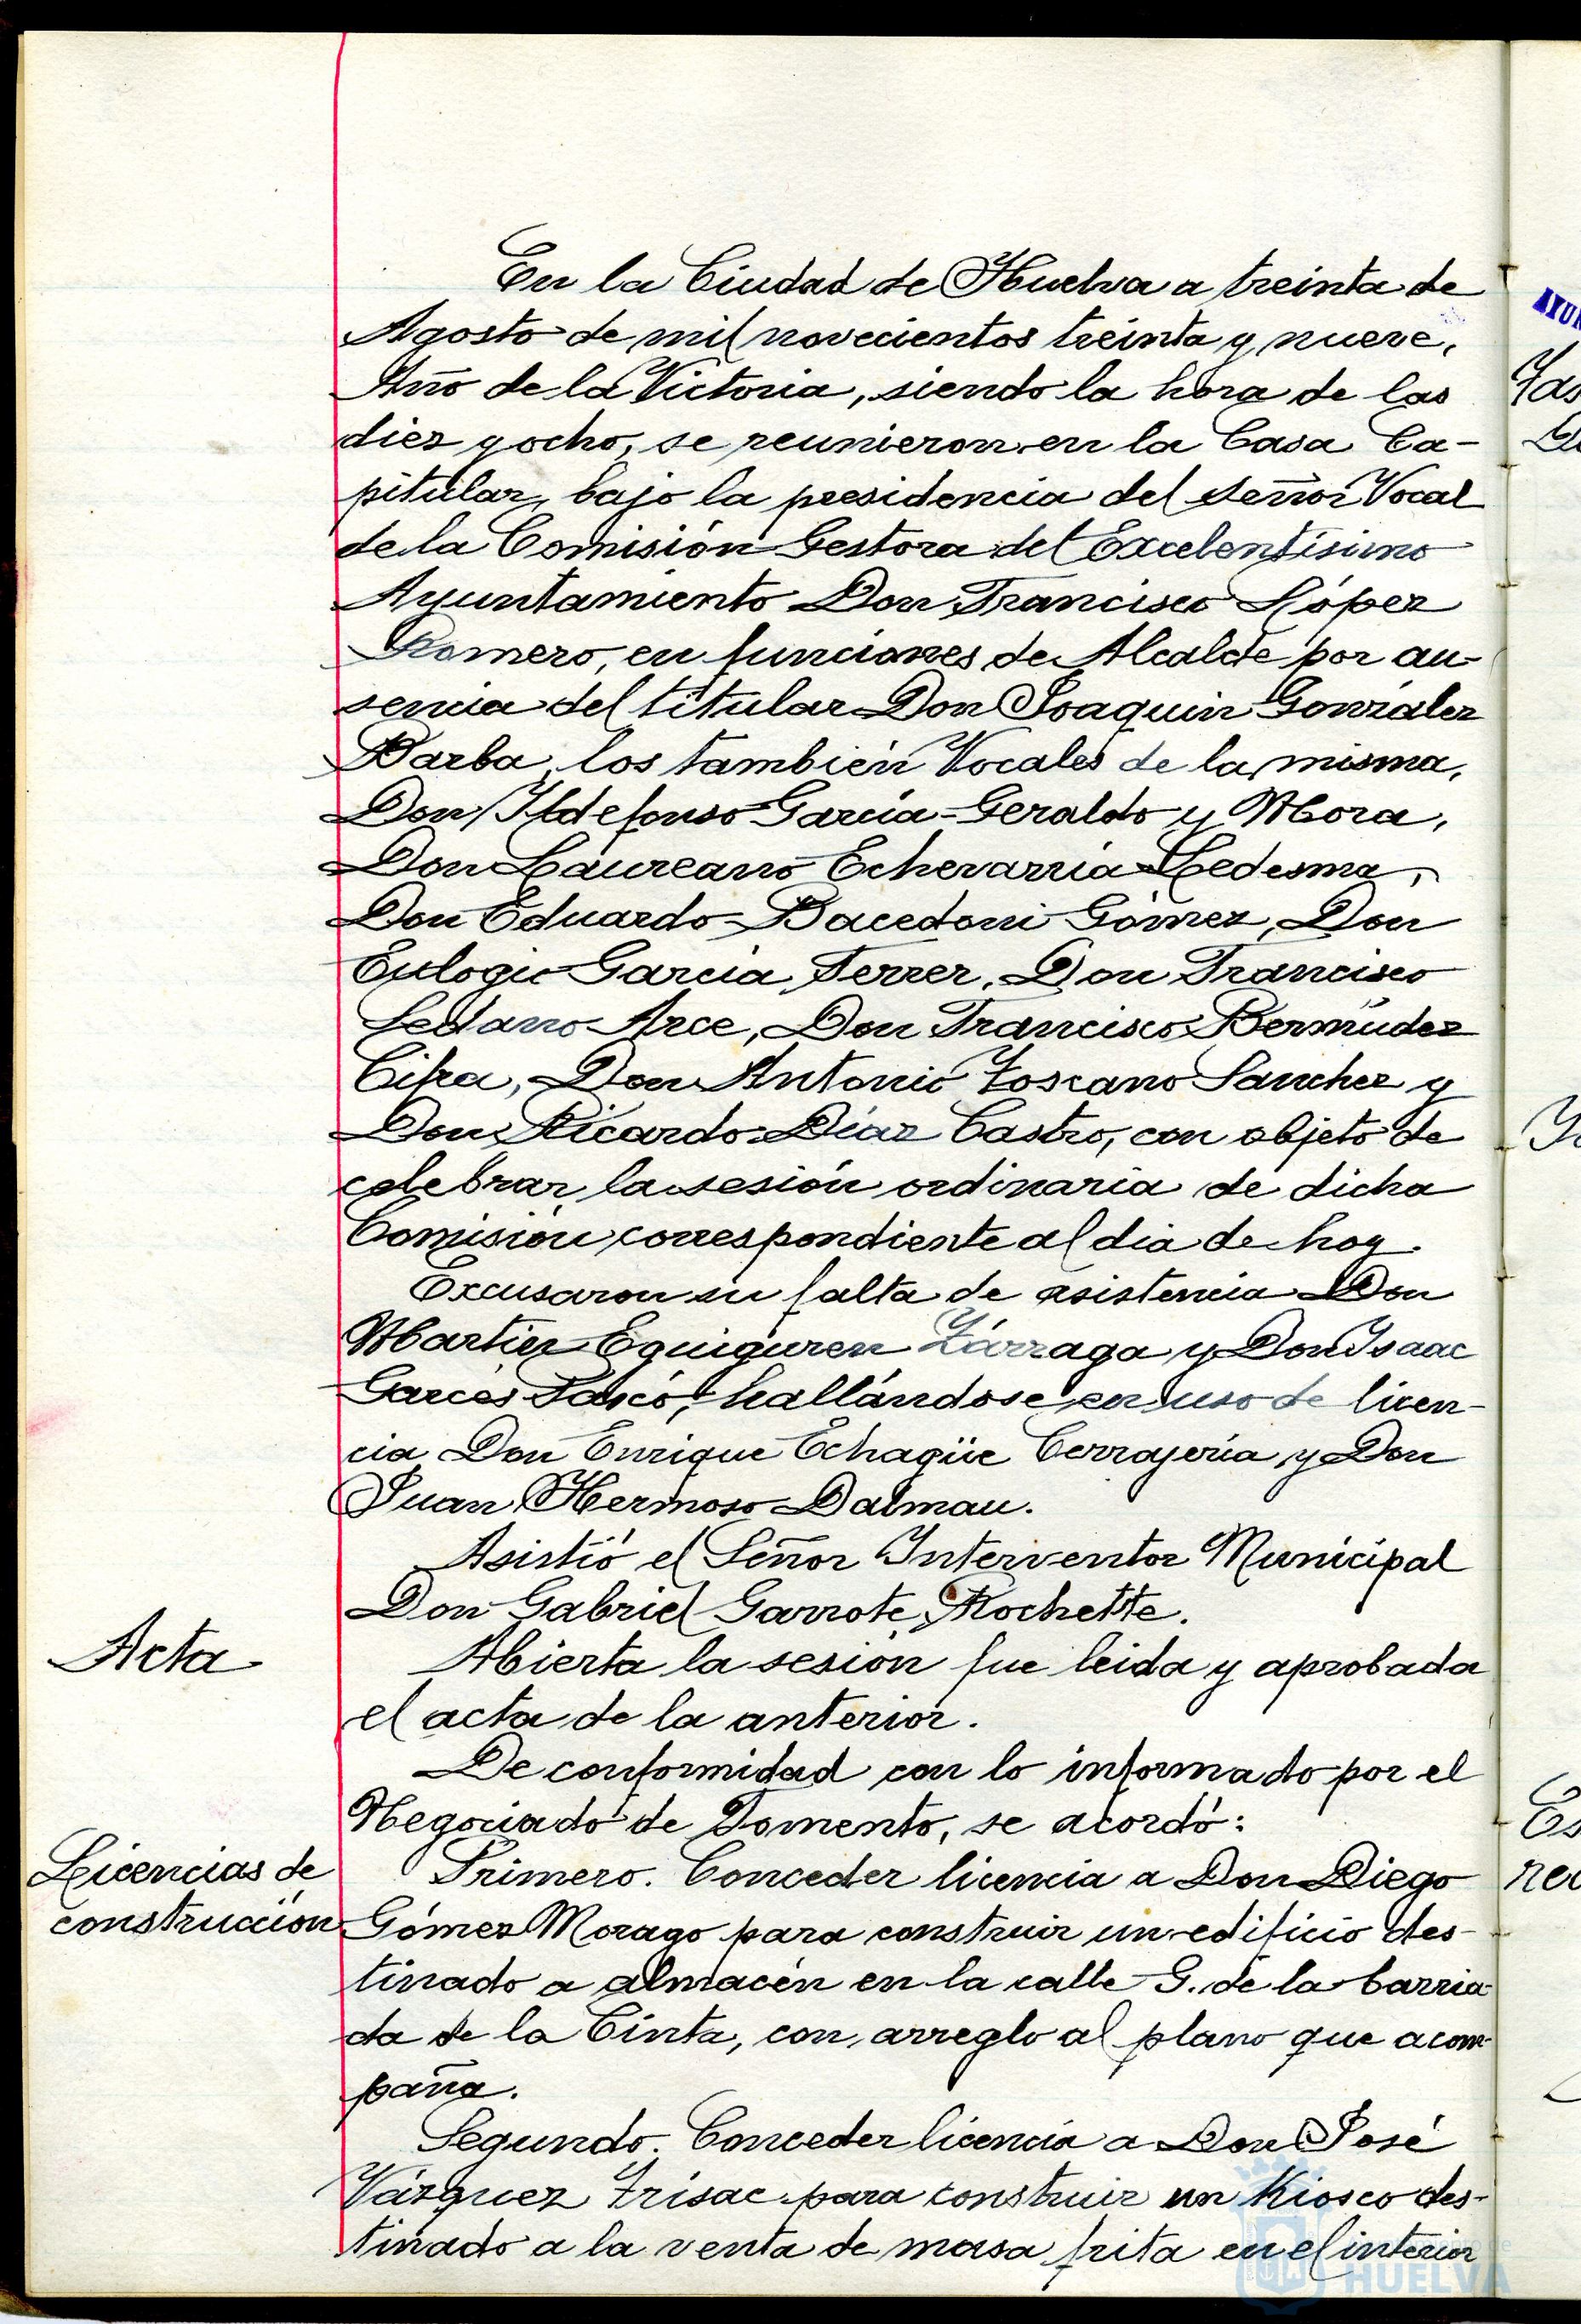 En la Ciudad de Huelva a treinta de
Agosto de mil novecientos treinta y nueve,
Año de la Victoria, siendo la hora de las
diez y ocho, se reunieron en la Casa Ca-
pitular, bajo la presidencia del señor Vocal
de la Comisión Gestora del Excelentísimo
Ayuntamiento Don Francisco López
Romero, en funciones de Alcalde por au-
sencia del titular Don Joaquin González
Barba, los también Vocales de la misma,
Don Ildefonso García-Geraldo y Mora,
Don Laureano Echevarría Ledesma,
Don Eduardo Bacedoni Gómez, Don
Eulogio García Ferrer, Don Francisco
Sedano Arce, Don Francisco Bermúdez
Cifra, Don Antonio Toscano Sanchez y
Don Ricardo Díaz Castro, con objeto de
celebrar la sesión ordinaria de dicha
Comisión correspondiente al dia de hoy.
Excusaron su falta de asistencia Don
Martier Eguiguren Zárraga y Don Isaac
Garcés hallándose en uso de licen-
cia Don Enrique Echagüe Cerrajería y Don
Juan Hermoso Dalmau.
Asistió el Señor Interventor Municipal
Don Gabriel Garrote Rochette.
Acta
Abierta la sesión fue leida y aprobada
el acta de la anterior.
De conformidad con lo informado por el
Negociado de Fomento, se acordó:
Licencias de
construcción
Primero. Conceder licencia a Don Diego
Gómez Morago para construir un edificio des-
tinado a almacén en la calle G. de la barria-
da de la Cinta, con arreglo al plano que acom-
paña.
Segundo. Conceder licencia a Don José
Vázquez para construir un Kiosco des-
tinado a la venta de masa frita en el interior
HUELVA